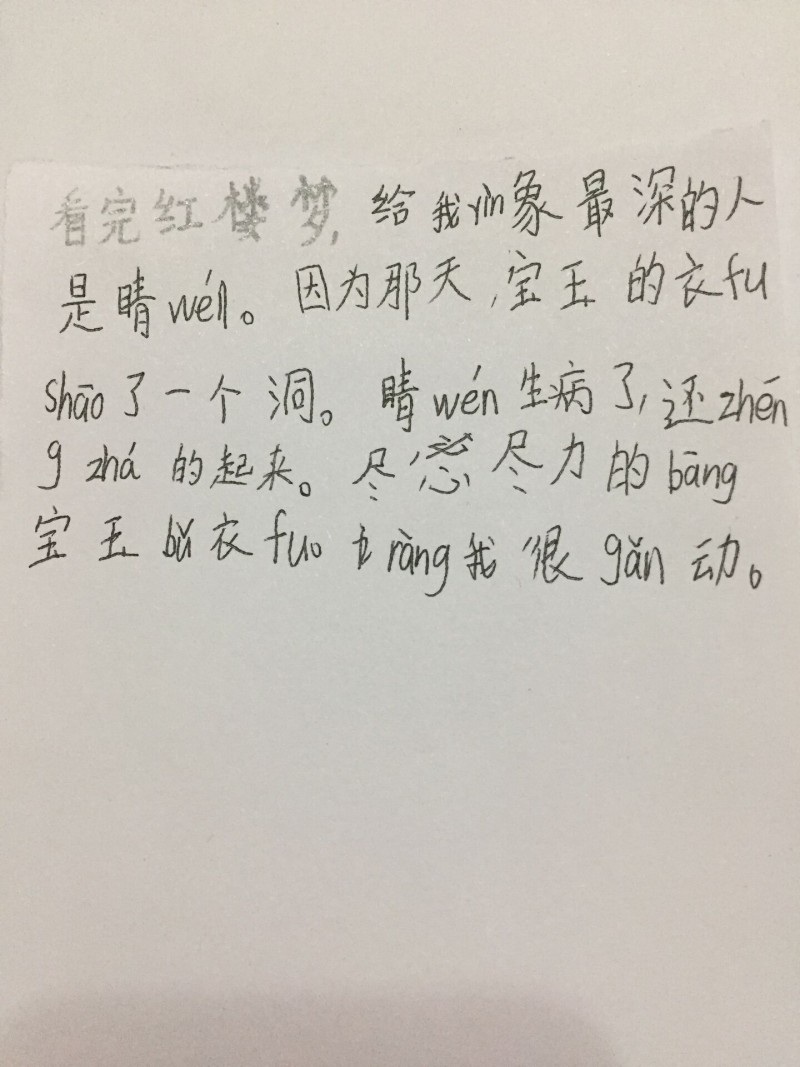 看完红楼梦, 给我yìn象最深的人
是晴wén。因为那天,宝玉的衣fu
shāo了一个洞。晴wén生病了,还zhēn
g zhá的起来。尽心尽力的bāng
宝玉bǔ衣fu。ràng我很gǎn动。